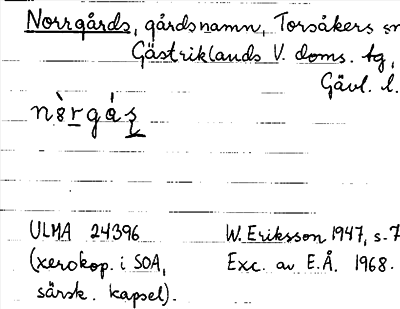 Norrgårds, gårdsnamn, Torsåkers sn
Gästriklands V. doms. tg,
Gävl. l.
ULMA 24396
(xerokop. i SOA,
särsk. kapsel).
W. Eriksson 1947, s. 7
Exc. av E.Å. 1968.